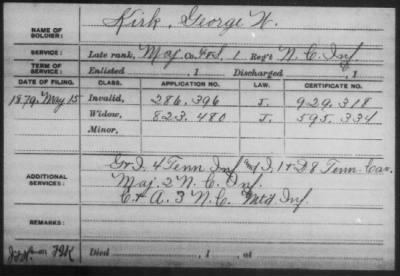 NAME OF SOLDIER: Kirk, George W.
SERVICE: Late rank, Maj Co. F&S, 1 Reg't N.C. Inf
TERM OF SERVICE: Enlisted , 1 Discharged , 1
DATE OF FILING. CLASS. APPLICATION NO. LAW. CERTIFICATE NO.
1879, May 15 Invalid, 286,396 J. 929.318
Widow, 823.480 J. 595.334
Minor,
ADDITIONAL SERVICES: 4 Tenn Inf 8 Tenn. Cav.
Maj. 2 N.C. Inf.
3 N.C. Mtd Inf
REMARKS:
Died , 1 , at